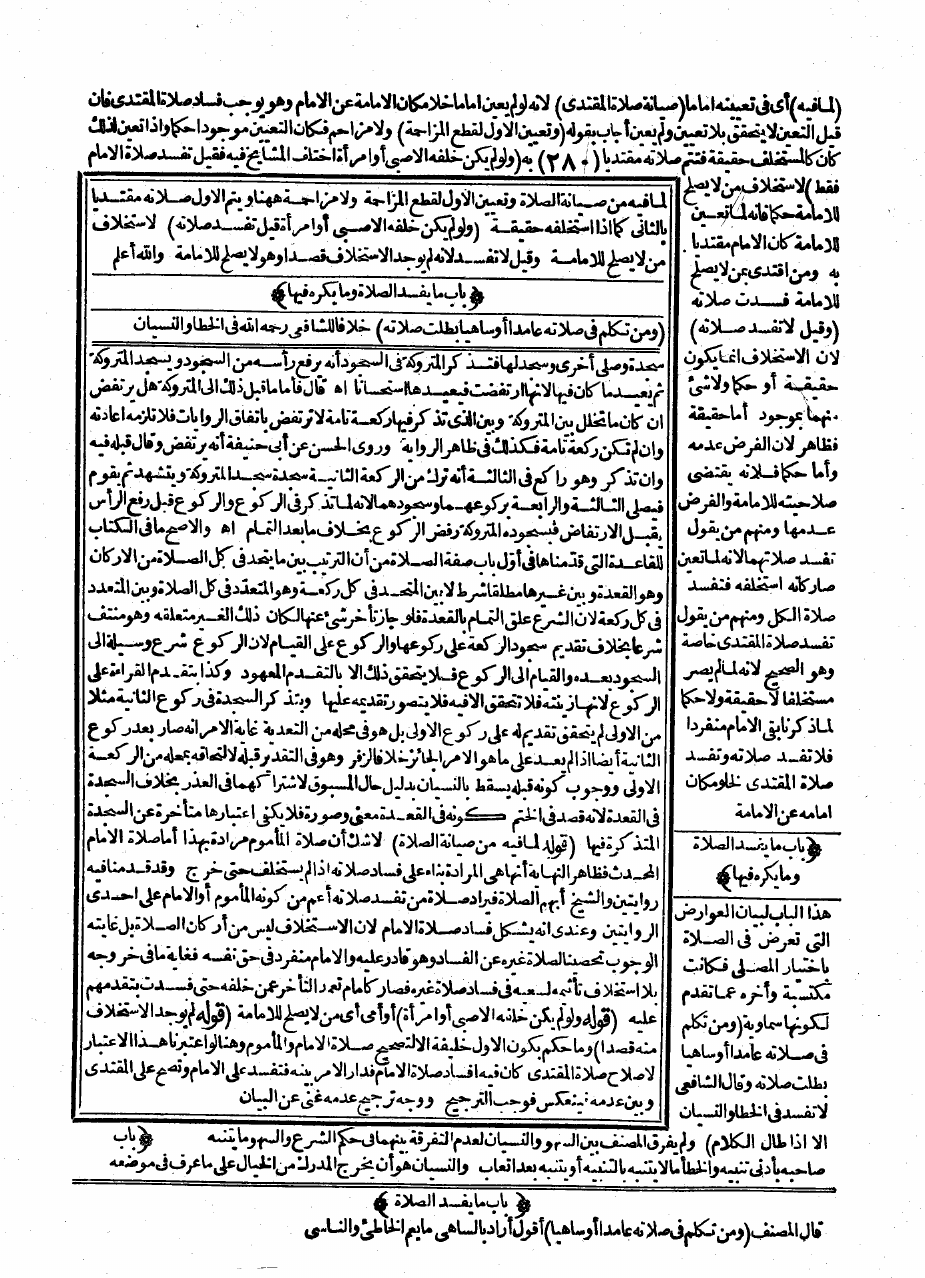 (لما فيه) أى فى تعيينه اماما (صيانة صلاة المقتدى) لانه لو لم يعين اماما خلا مكان الامامة عن الامام وهو يوجب فساد صلاة المقتدى فان
قيل التعين لا يتحقق بلا تعيين ولم يعين أجاب بقوله (وتعيين الاول لقطع المزاحة) ولا مزاحم فكان التعيين موجودا حكما واذا تعين لذلك
كان كالمستخلف حقيقة فتتم صلاته مقتديا (٢٨٠) به (ولو لم يكن خلفه الا صبى أو امرأة اختلف المشايخ فيه فقيل تفسد صلاة الامام
فقط) لاستخلاف من لا يصلح
للامامة حكما فانه لما تعين
للامامة كان الامام مقتديا
به ومن اقتدى بمن لا يصلح
للامامة فسدت صلاته
(وقيل لا تفسد صلاته)
لان الاستخلاف انما يكون
حقيقة أو حكما ولا شئ
منهما بموجود أما حقيقة
فظاهر لان الفرض عدمه
وأما حكما فلانه يقتضى
صلاحيته للامامة والفرض
عدمها ومنهم من يقول
تفسد صلاتهما لانه لما تعين
صار كانه استخلفه فتفسد
صلاة الكل ومنهم من يقول
تفسد صلاة المقتدى خاصة
وهو الصحيح لانه لما لم يصر
مستخلفا لا حقيقة ولا حكما
لما ذكرنا بقى الامام منفردا
فلا تفسد صلاته وتفسد
صلاة المقتدى لخلو مكان
امامه عن الامامة
﴿باب ما يفسد الصلاة
وما يكره فيها﴾
هذا الباب لبيان العوارض
التى تعرض فى الصلاة
باختيار المصلى فكانت
مكتسبة وأخره عما تقدم
لكونها سماوية (ومن تكلم
فى صلاته عامدا أو ساهيا
بطلت صلاته وقال الشافعى
لا تفسد فى الخطا والنسيان
الا اذا طال الكلام) ولم يفرق المصنف بين السهو والنسيان لعدم التفرقة بينهما فى حكم الشرع والسهو ما يتنبه
صاحبه بأدنى تنبيه والخطأ ما لا يتنبه بالتنبيه أو يتنبه بعد اتعاب والنسيان هو أن يخرج المدرك من الخيال على ما عرف فى موضعه
لما فيه من صيانة الصلاة وتعيين الاول لقطع المزاحة ولا مزاحمة ههنا ويتم الاول صلاته مقتديا
بالثانى كما اذا استخلفه حقيقة (ولو لم يكن خلفه الا صبى أو امرأة قيل تفسد صلاته) لاستخلاف
من لا يصلح للامامة وقيل لا تفسد لانه لم يوجد الاستخلاف قصدا وهو لا يصلح للامامة والله أعلم
﴿باب ما يفسد الصلاة وما يكره فيها﴾
(ومن تكلم فى صلاته عامدا أو ساهيا بطلت صلاته) خلافا للشافعى رحمه الله فى الخطا والنسيان
سجدة وصلى أخرى وسجد لها فتذكر المتروكة فى السجود أنه يرفع رأسه من السجود ويسجد المتروكة
ثم يعيد ما كان فيها لانها ارتفضت فيعيدها استحسانا اه قال فأما ما قبل ذلك الى المتروكة هل يرتفض
ان كان ما تخلل بين المتروكة وبين الذى تذكر فيها ركعة تامة لا ترتفض باتفاق الروايات فلا تلزمه اعادته
وان لم تكن ركعة تامة فكذلك فى ظاهر الرواية وروى الحسن عن أبى حنيفة أنه يرتفض وقال قبله فيه
وان تذكر وهو راكع فى الثالثة أنه ترك من الركعة الثانية سجدة سجد المتروكة ويتشهد ثم يقوم
فيصلى الثالثة والرابعة بركوعهما وسجودهما لانه لما تذكر فى الركوع والركوع قبل رفع الرأس
يقبل الارتفاض فبسجوده المتروكة رفض الركوع بخلاف ما بعد التمام اه والاصح ما فى الكتاب
للقاعدة التى قدمناها فى أول باب صفة الصلاة من أن الترتيب بين ما يتحد فى كل الصلاة من الاركان
وهو القعدة وبين غيرها مطلقا شرط لا بين المتحد فى كل ركعة وهو المتعدد فى كل الصلاة وبين المتعدد
فى كل ركعة لان الشرع علق التمام بالقعدة فلو جاز تأخر شئ عنها لكان ذلك الغير متعلقه وهو منتف
شرعا بخلاف تقديم سجود الركعة على ركوعها والركوع على القيام لان الركوع شرع وسيلة الى
السجود بعده والقيام الى الركوع فلا يتحقق ذلك الا بالتقدم المعهود وكذا بتقدم القراءة على
الركوع لانها زينته فلا تتحقق الا فيه فلا يتصور تقديمه عليها وبتذكر السجدة فى ركوع الثانية مثلا
من الاولى لم يتحقق تقديم له على ركوع الاولى بل هو فى محله من التعدية غاية الامر انه صار بعد ركوع
الثانية أيضا اذا لم يعد على ما هو الامر الجائز خلافا لزفر وهو فى التقدير قبله لالتحاقه بمحله من الركعة
الاولى ووجوب كونه قبله يسقط بالنسيان بدليل حال المسبوق لاشتراكهما فى العذر بخلاف السجدة
فى القعدة لانه قصد فى الختم كونه فى القعدة معنى وصورة فلا يكفى اعتبارها متأخرة عن السجدة
المتذكرة فيها (قوله لما فيه من صيانة الصلاة) لا شك أن صلاة المأموم مرادة بهذا أما صلاة الامام
المحدث فظاهر النهاية أنها هى المرادة بناء على فساد صلاته اذا لم يستخلف حتى خرج وقد قدمنا فيه
روايتين والشيخ أبهم الصلاة فيراد صلاة من تفسد صلاته أعم من كونه المأموم أو الامام على احدى
الروايتين وعندى انه يشكل فساد صلاة الامام لان الاستخلاف ليس من أركان الصلاة بل غايته
الوجوب تحصينا لصلاة غيره عن الفساد وهو قادر عليه والامام منفرد فى حق نفسه فغاية ما فى خروجه
بلا استخلاف تأثيمه لسعيه فى فساد صلاة غيره فصار كامام تعمد التأخر عمن خلفه حتى فسدت بتقدمهم
عليه (قوله ولو لم يكن خلفه الا صبى أو امرأة) أو أمى أى من لا يصلح للامامة (قوله لم يوجد الاستخلاف
منه قصدا) وما حكم بكون الاول خليفة الا لتصحيح صلاة الامام والمأموم وهنا لو اعتبرنا هذا الاعتبار
لاصلاح صلاة المقتدى كان فيه افساد صلاة الامام فدار الامر بينه فتفسد على الامام وتصح على المقتدى
وبين عدمه فينعكس فوجب الترجيح ووجه ترجيح عدمه غنى عن البيان
﴿باب
﴿باب ما يفسد الصلاة﴾
قال المصنف (ومن تكلم فى صلاته عامدا أو ساهيا) أقول أراد بالساهى ما يعم الخاطئ والناسى